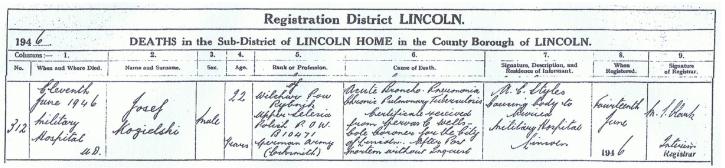 Registration District LINCOLN.
1946 DEATHS in the Sub-District of LINCOLN HOME in the County Borough of LINCOLN.
Columns:— 1. 2. 3. 4. 5. 6. 7. 8. 9.
No. When and Where Died. Name and Surname. Sex. Age. Rank or Profession. Cause of Death. Signature, Description, and Residence of Informant. When Registered. Signature of Registrar.
312
Eleventh
June 1946
Military
Hospital
U.D.
Josef
Kozielski
Male
22
years
of
Rybnik
Upper Silesia
Polish P.O.W.
B10471
German Army
(Locksmith)
Acute Broncho Pneumonia
Chronic Pulmonary Tuberculosis
Certificate received
from
Coroner for the City
of Lincoln. After Post
Mortem without Inquest
Causing body to
be buried
Military Hospital
Lincoln
Fourteenth
June
1946
Interim
Registrar